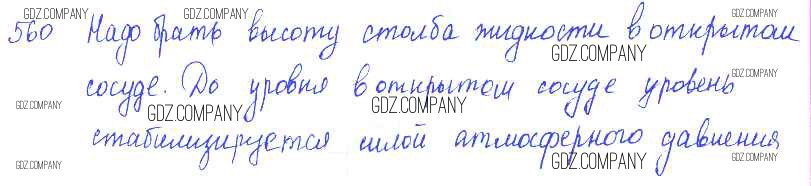 GDZ.COMPANY GDZ.COMPANY GDZ.COMPANY
560 Надо брать высоту столба жидкости в открытом
GDZ.COMPANY
сосуде. До уровня в открытом сосуде уровень
GDZ.COMPANY
GDZ.COMPANY GDZ.COMPANY GDZ.COMPANY
стабилизируется силой атмосферного давления
GDZ.COMPANY GDZ.COMPANY GDZ.COMPANY